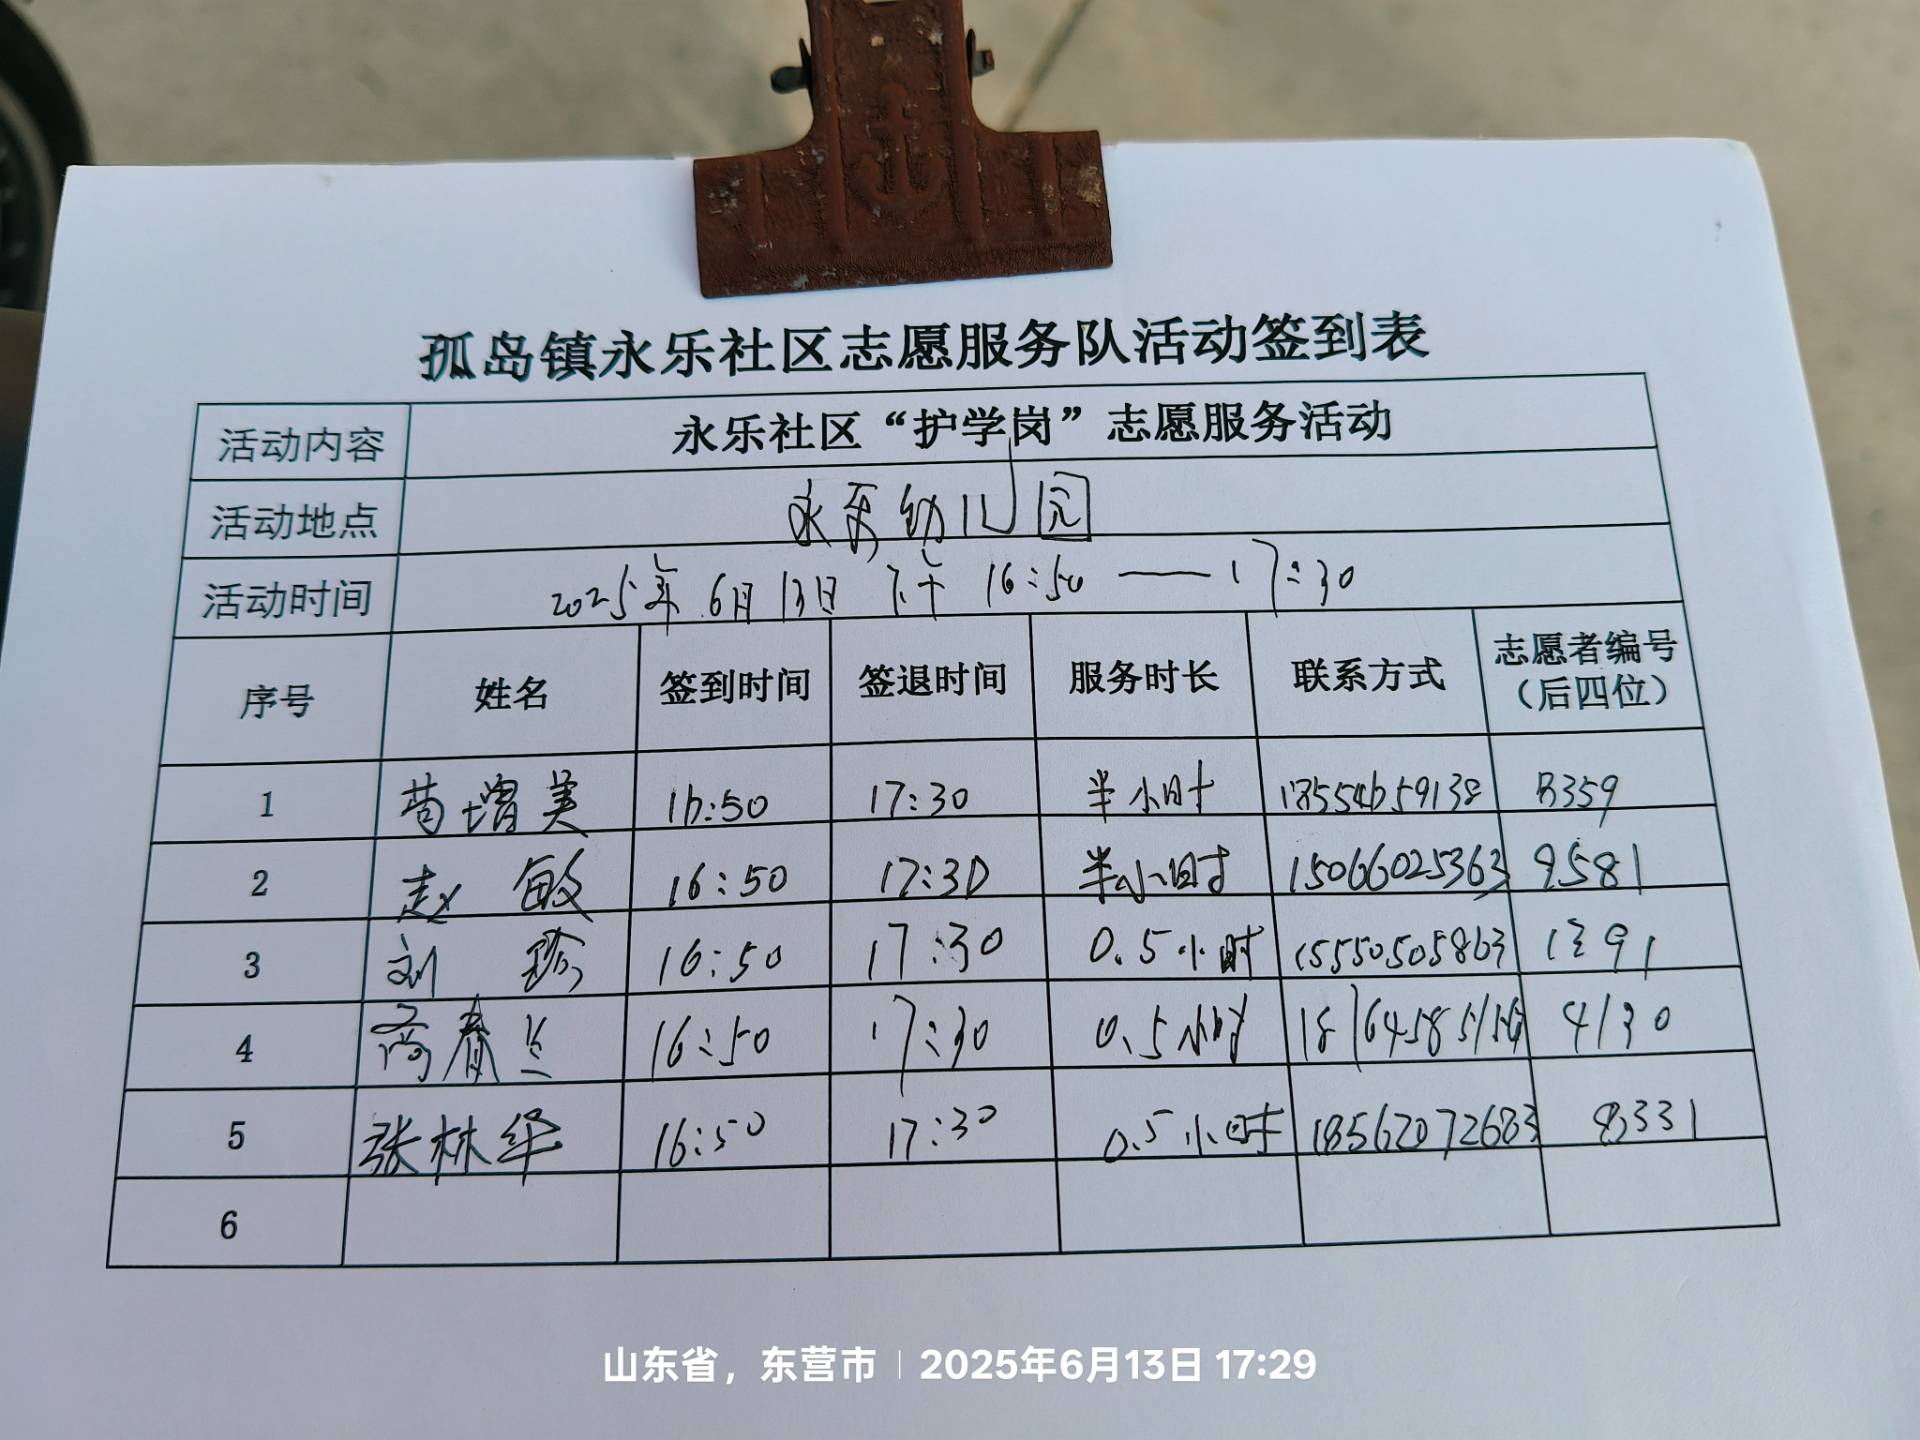 孤岛镇永乐社区志愿服务队活动签到表
活动内容 永乐社区“护学岗”志愿服务活动
活动地点 永乐幼儿园
活动时间 2025年6月13日 下午 16:50 —— 17:30
序号 姓名 签到时间 签退时间 服务时长 联系方式 志愿者编号（后四位）
1 苟增美 16:50 17:30 半小时 18554659138
2 赵敏 16:50 17:30 半小时 15066025363 9581
3 刘珍 16:50 17:30 0.5小时 15550505863
4 春兰 16:50 17:30 0.5小时 4130
5 张林华 16:50 17:30 0.5小时 18562072683 8331
6
山东省，东营市 | 2025年6月13日 17:29